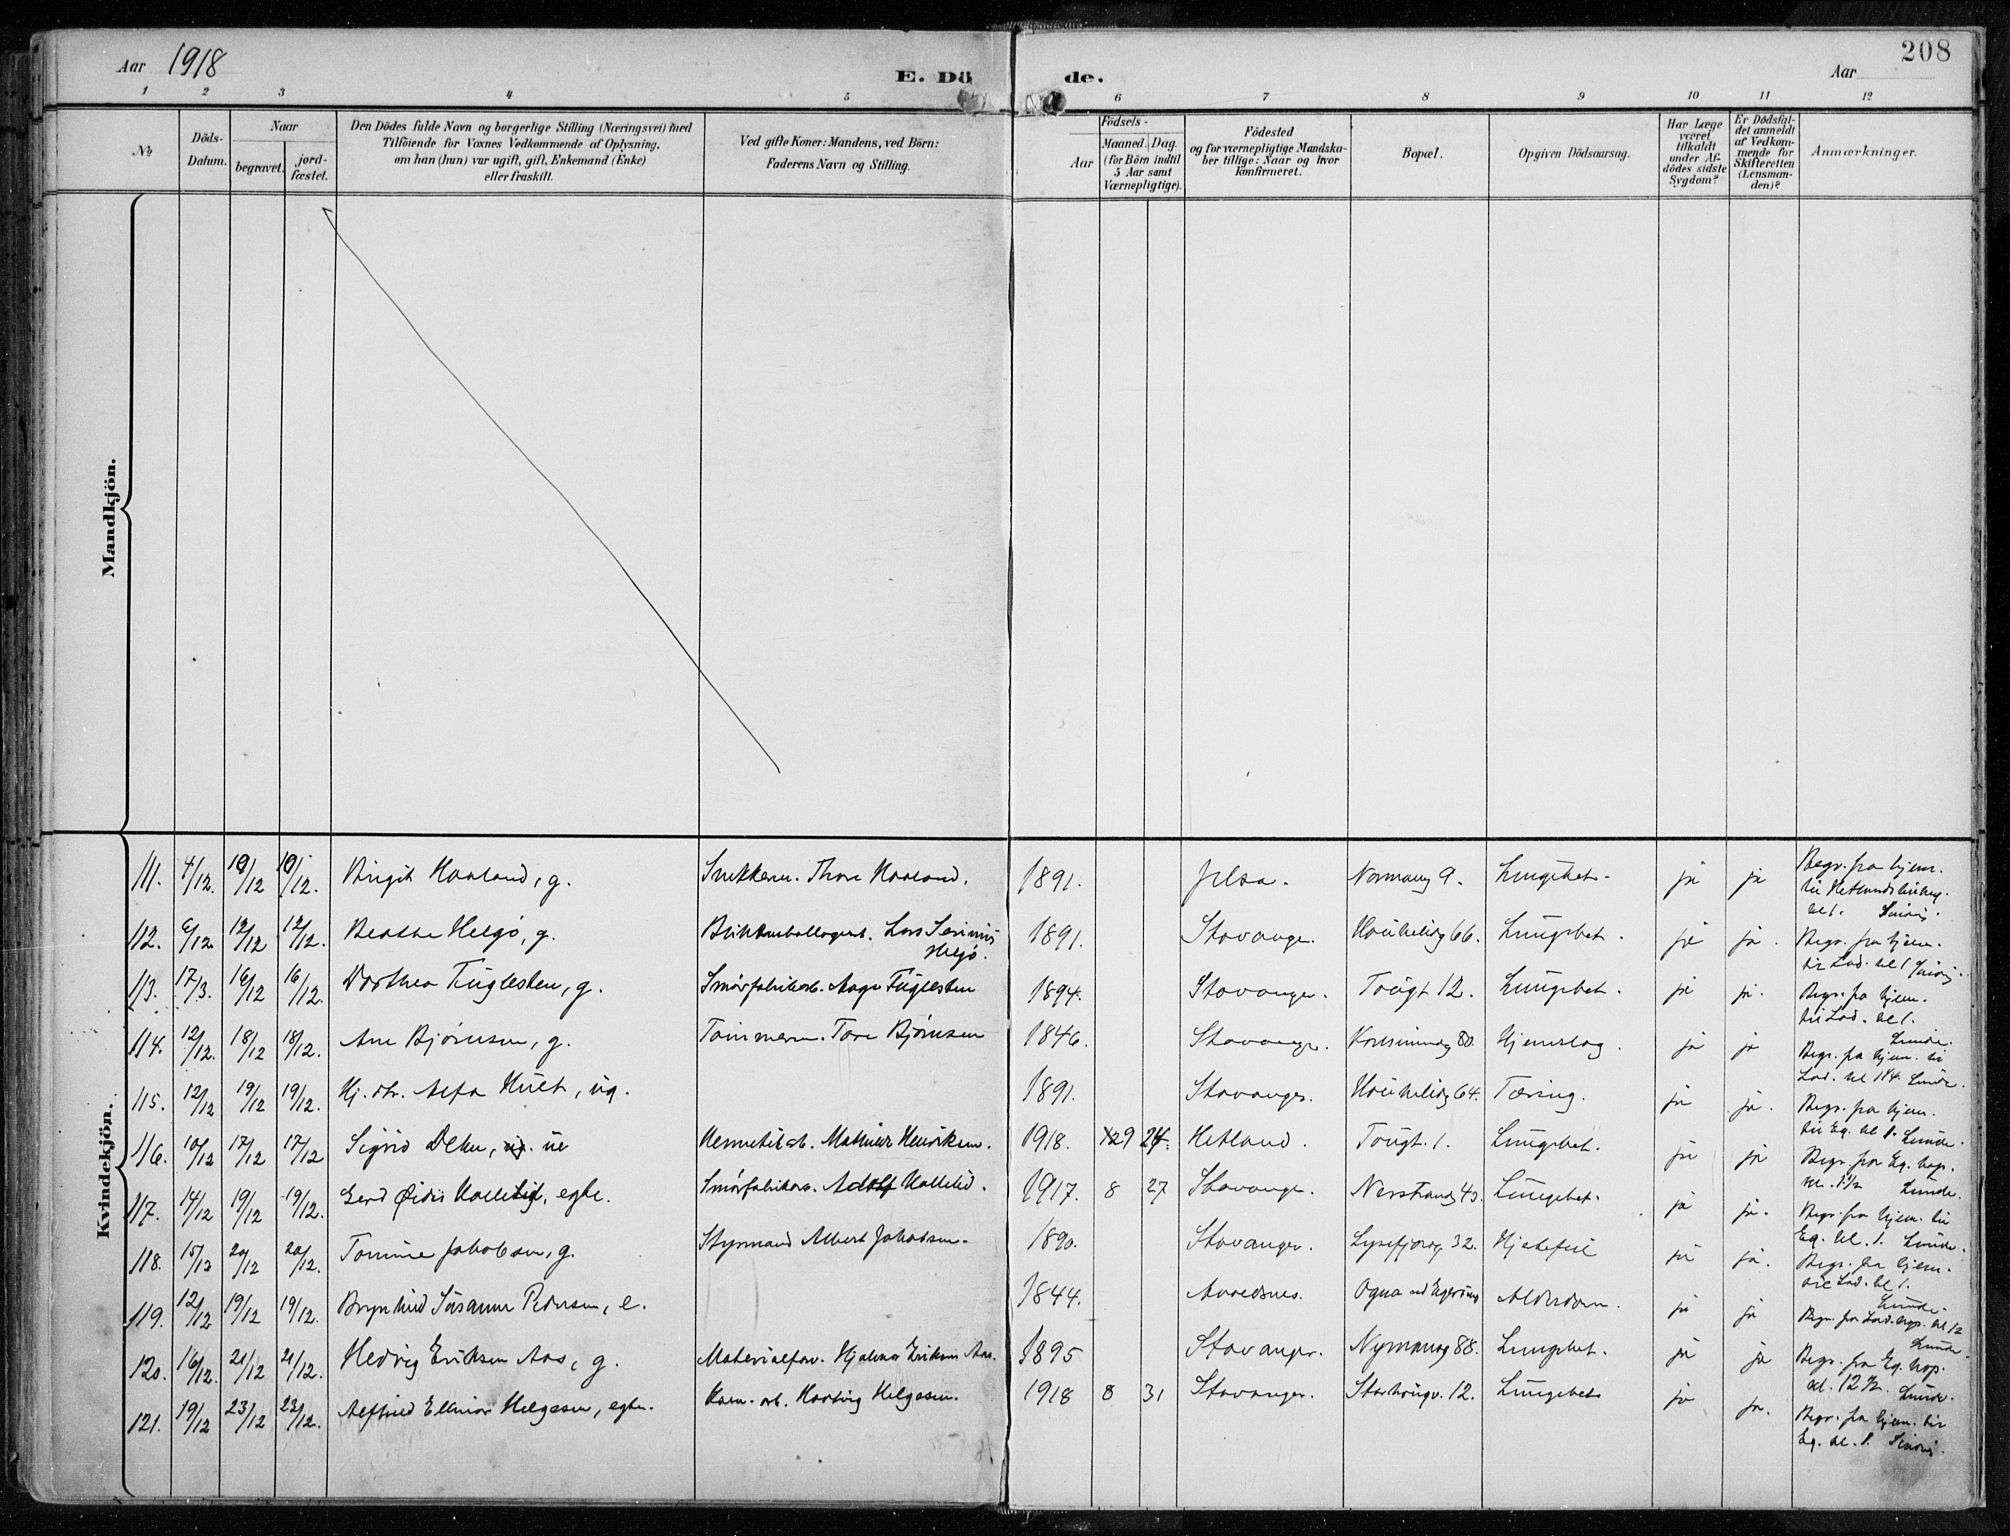 Aar 1918
E. Dö
de.
Aar
208
1 2 3 4 5 6 7 8 9 10 11 12
No
Döds-
Datum.
Naar
begravet.
jord-
fæstet.
Den Dödes fulde Navn og borgerlige Stilling (Næringsvei) med
Tilföiende for Voxnes Vedkommende af Oplysning,
om han (hun) var ugift, gift, Enkemand (Enke)
eller fraskilt.
Ved gifte Koner: Mandens, ved Börn:
Faderens Navn og Stilling.
Födsels-
Aar
Maaned.
Dag.
(for Börn indtil
5 Aar samt
Værnepligtige).
Födested
og for værnepligtige Mandska-
ber tillige: Naar og hvor
konfirmeret.
Bopæl.
Opgiven Dödsaarsag.
Har Læge
været
tilkaldt
under Af-
dödes sidste
Sygdom?
Er Dödsfal-
det anmeldt
af Vedkom-
mende for
Skifteretten
(Lensman-
den)?
Anmærkninger.
Mandkjön.
Kvindekjön.
111. 4/12. 10/12 10/12. Birgit Haaland, g. Snekkerm. Thore Haaland. 1891. Jelsa. 9. Lungebet. ja ja Begr. fra hjem.
112. 6/12 12/12 12/12. Beathe Helgø, g. Lars 1891. Stavanger. 66. Lungebet. ja ja. Begr. fra hjem.
Helgø.
113. 17/3. 16/12 16/12. Dorthea Fuglesten, g. Smørfabrikarb. Aage Fuglesten 1894. Stavanger. Tougt 12. Lungebet. ja ja. Begr. fra hjem.
til Lad. kl 1.
Lunde.
114. 12/12. 18/12 18/12. Ane Bjørnsen, g. Tømmerm. Tore Bjørnsen 1846. Stavanger. 80. Hjerneslag. ja ja Begr. fra hjem. til
Lad. kl 1 Lunde.
115. 12/12 19/12 19/12. Alfa Hult, ug. 1891. Stavanger. 64. Tæring. ja ja. Begr. fra hjem.
til Eg. kl 1. Lunde.
116. 10/12 17/12 17/12 Sigrid ue Hermetikarb. Mathias Henriksen. 1918. 9 Hetland. Tougt. 1. Lungebet. ja ja Begr. fra Eg. kap.
Lunde.
117. 14/12 19/12 19/12. Gerd Øidis Hallelid, egte. Smørfabrikarb. Adolf Hallelid. 1917. 8 27 Stavanger. Lungebet. ja ja. Begr. fra hjem. til
Eg. kl. 1. Lunde.
118. 15/12 20/12 20/12. Tomine Jakobsen, g. Styrmand Albert Jakobsen. 1890. Stavanger. Lysefjordg 32. Hjertefeil ja ja. Begr. fra hjem.
til Lad. kl 1.
Lunde.
119. 12/12 19/12 19/12. Brynhild Susanne Pedersen, e. 1844. Avaldsnes. Ogna Alderdom. ja ja Begr. fra Lad. kap. kl 12
Lunde.
120. 16/12. 21/12 21/12. Hedvig Eriksen Aas, g. Materialforv. Hjalmar Eriksen Aas. 1895 Stavanger. Nymansg 88. Lungebet. ja ja Begr. fra Eg. kap.
kl. 12 1/2. Lunde.
121. 19/12 23/12 23/12. Alfhild Ellinor Helgesen, egte. Hartvig Helgesen. 1918 8 31 Stavanger. 12. Lungebet. ja ja. Begr. fra hjem. til
Eg. kl. 1.